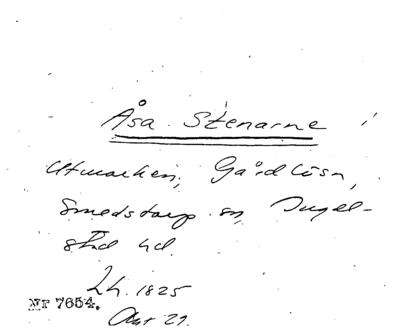 Åsa Stenarne
Utmarken, Gårdlösa,
Smedstorps sn, Ingel-
stad hd.
Lh. 1825
Nr 7654.
Akt 29.